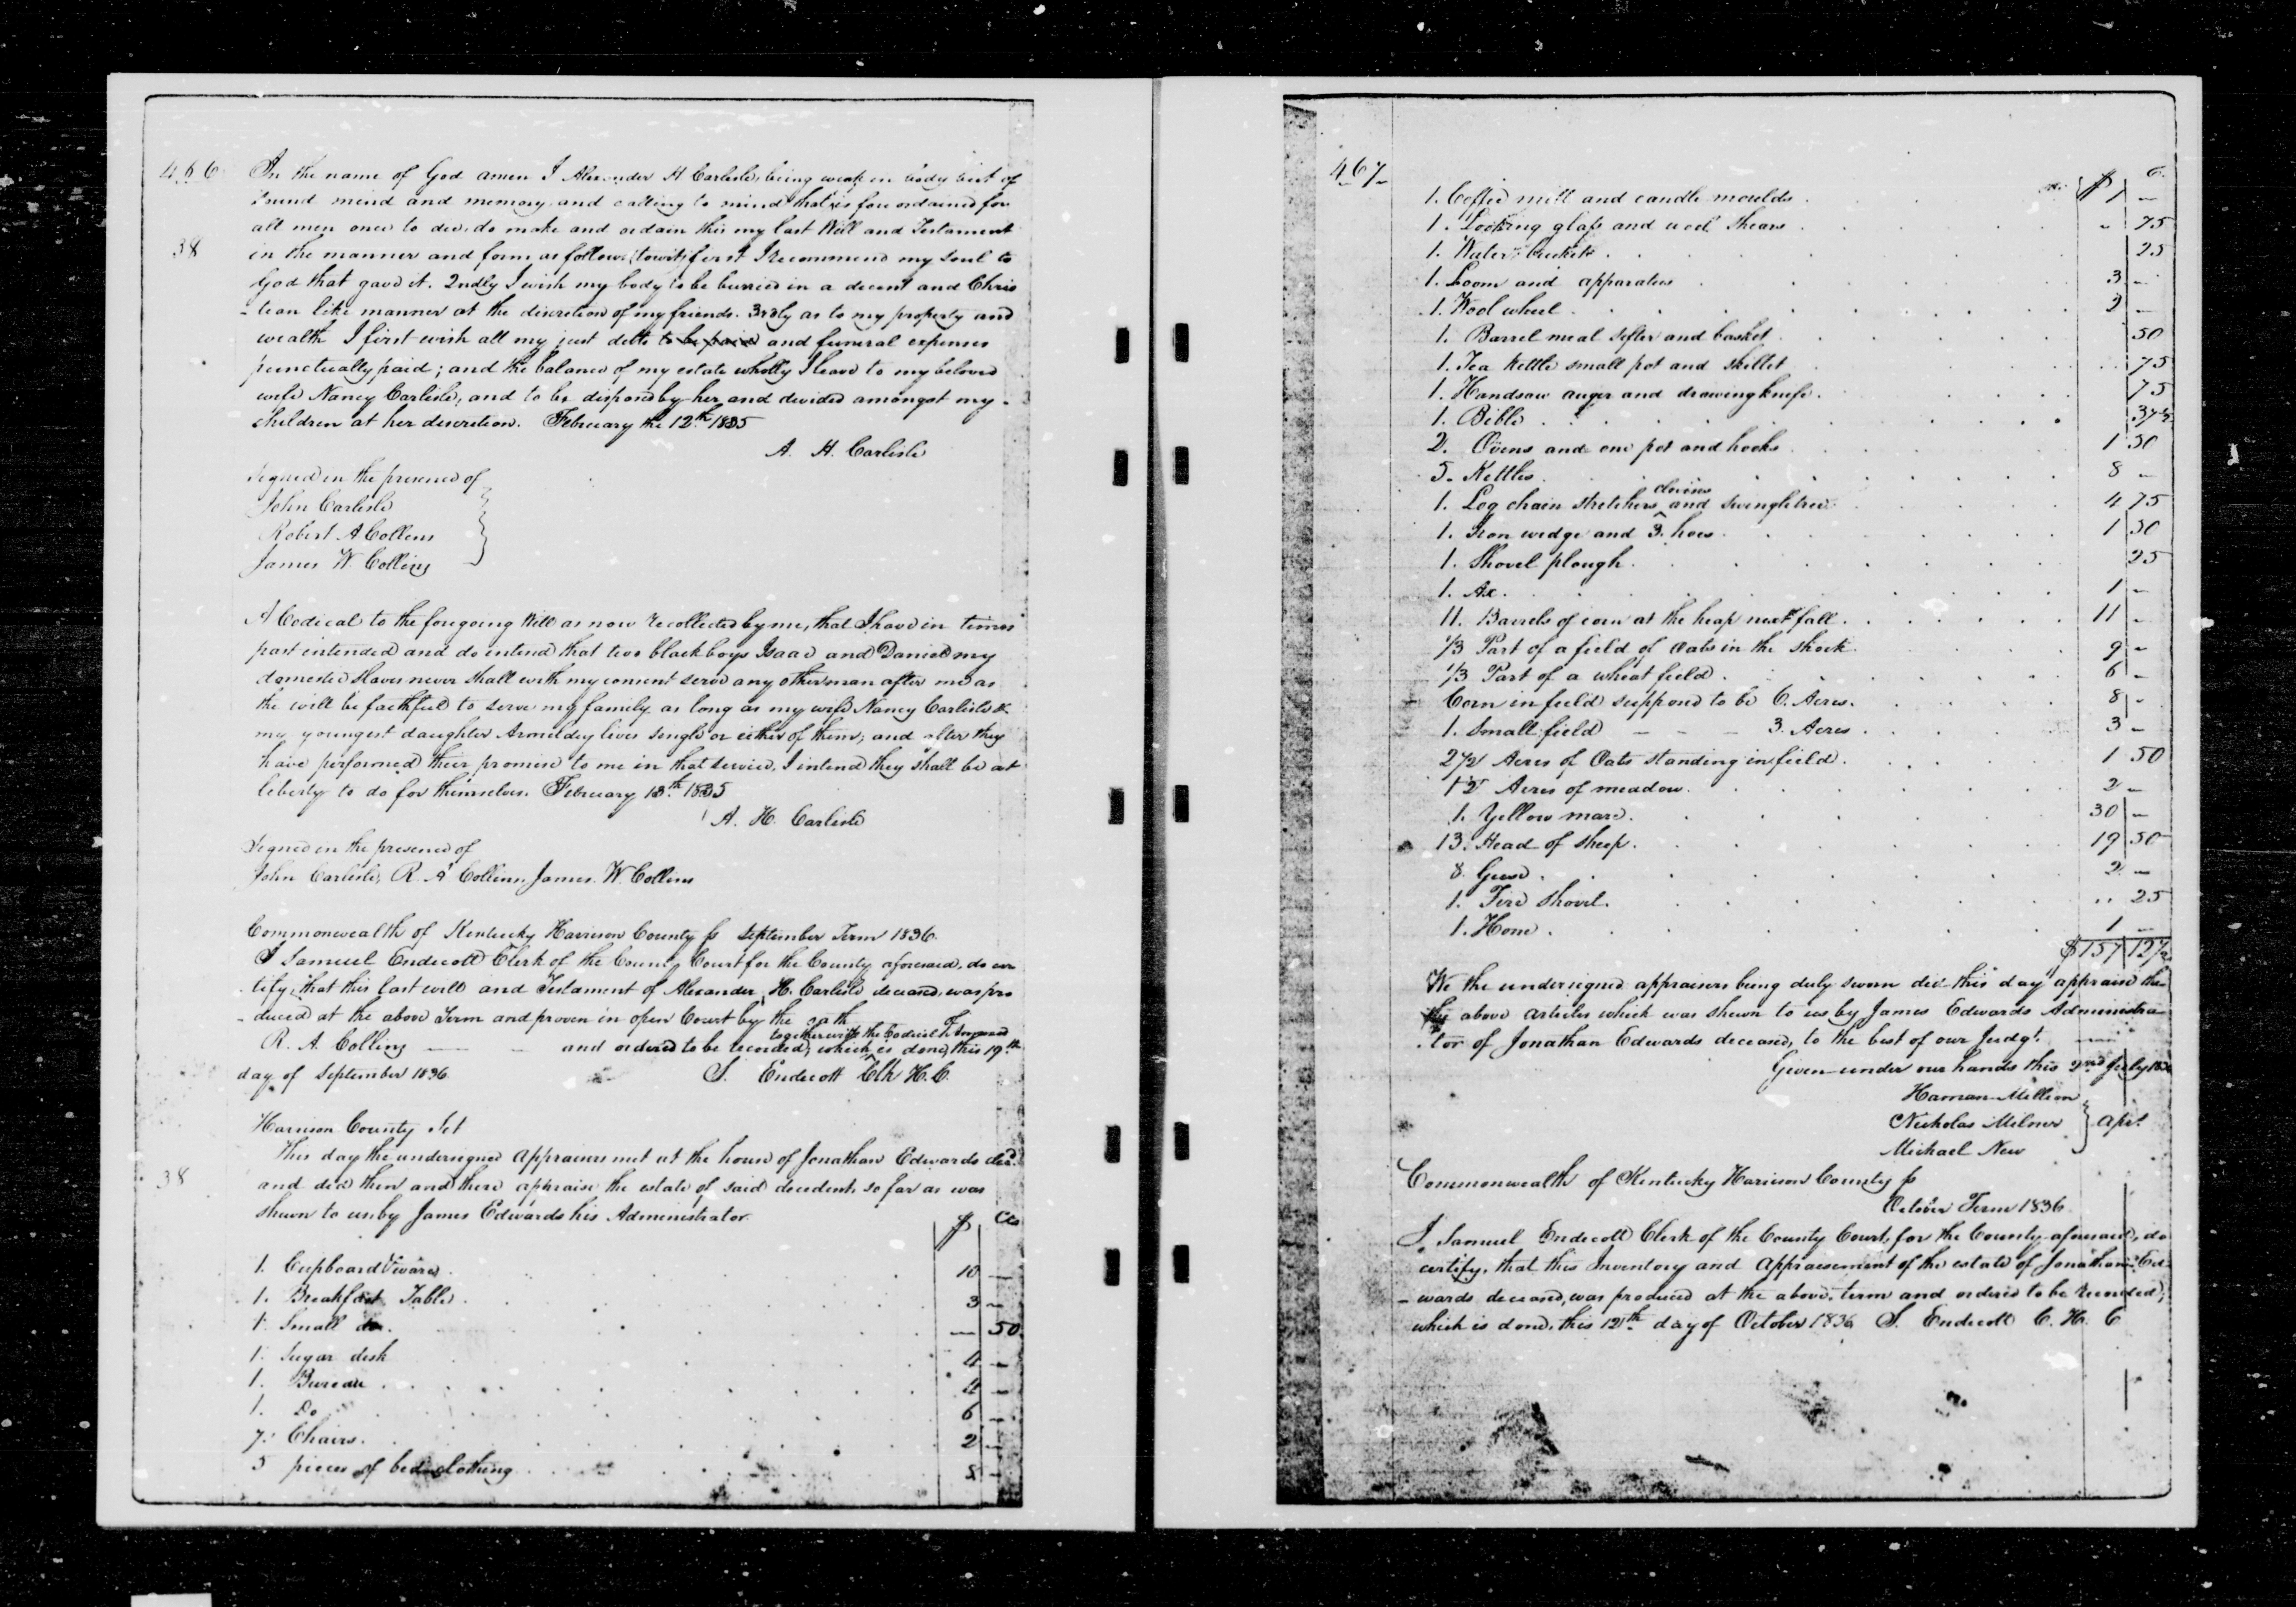 466
In the name of God amen I Alexander H Carlisle, being weak in body but of
sound mind and memory and calling to mind that is fore ordained for
all men once to die, do make and ordain this my last Will and Testament
38
in the manner and form as follows (towit) first I recommend my soul to
God that gave it. 2ndly I wish my body to be burried in a decent and Chris
-tian like manner at the discretion of my friends. 3rdly as to my property and
wealth I first wish all my just debts to be paid and funeral expenses
punctually paid; and the balance of my estate wholly I leave to my beloved
wife Nancy Carlisle, and to be disposed by her and devided amongst my
children at her discretion. February the 12th 1835
A. H. Carlisle
Signed in the presence of
John Carlisle
Robert A Collins
James W. Collins
A Codical to the foregoing Will as now recollected by me, that I have in times
past intended and do intend that two black boys Isaac and Daniel my
domestic slaves never shall with my consent serve any other man after me as
the will be faithful to serve my family as long as my wife Nancy Carlisle &
my youngest daughter Armelday lives single or either of them; and after they
have performed their promise to me in that service, I intend they shall be at
liberty to do for themselves. February 13th 1835
A. H. Carlisle
Signed in the presence of
John Carlisle, R. A Collins, James W. Collins
Commonwealth of Kentucky Harrison County ss September Term 1836.
I Samuel Endicott Clerk of the County Court for the County aforesaid, do cer
tify, that this last will and Testament of Alexander H. Carlisle deceased, was pro
-duced at the above Term and proven in open Court by the oath of
together with the Codicil thereon
R. A. Collins and ordered to be recorded, which is done, this 19th
day of September 1836 S. Endicott Clk H. C.
Harrison County Sct
This day the undersigned appraisers met at the house of Jonathan Edwards decd.
38
and did then and there appraise the estate of said decedent, so far as was
shewn to us by James Edwards his Administrator.
$ Cts
1. Cupboard & ware 10 —
1. Breakfast Table 3 —
1. Small do. — 50
1. Sugar desk 4 —
1. Bureau 4 —
1. Do 6 —
7. Chairs. 2 —
5 pieces of bed clothing 8 —
467
$ C.
1. Coffee mill and candle moulds 1 —
1. Looking glass and wool shears 75
1. Water bucket 25
1. Loom and apparatus 3 —
1. Wool wheel 2 —
1. Barrel meal sifter and basket 50
1. Tea kettle small pot and skillet 75
1. Handsaw auger and drawing knife. 75
1. Bible 37½
2. Ovens and one pot and hooks 1 50
5. Kettles 8 —
clevises
1. Log chain stretchers ^ and swingletree 4 75
1. Iron wedge and 3. hoes 1 50
1. Shovel plough. 25
1. Ax. 1 —
11. Barrels of corn at the heap next fall. 11 —
1/3 Part of a field of Oats in the shock. 9 —
1/3 Part of a wheat field. 6 —
Corn in field supposed to be 6. Acres. 8 -
1. Small field — — — 3. Acres 3 —
2½ Acres of Oats standing in field. 1 50
1½ Acres of meadow. 2 —
1. Yellow mare. 30 —
13. Head of sheep. 19 50
8. Geese. 2 —
1. Fire shovel. 25
1. Hone. 1 —
$157 12½
We the undersigned appraisers being duly sworn did this day appraise the
above articles which was shewn to us by James Edwards Administra
-tor of Jonathan Edwards deceased, to the best of our Judgt.
Given under our hands this 2nd July 1836
Haman Million
Nicholas Milner } Aprs.
Michael New
Commonwealth of Kentucky Harrison County ss
October Term 1836
I, Samuel Endicott Clerk of the County Court, for the County aforesaid, do
certify, that this Inventory and Appraisement of the estate of Jonathan Ed
-wards deceased, was produced at the above term and ordered to be recorded,
which is done, this 12th day of October 1836 S. Endicott C. H. C